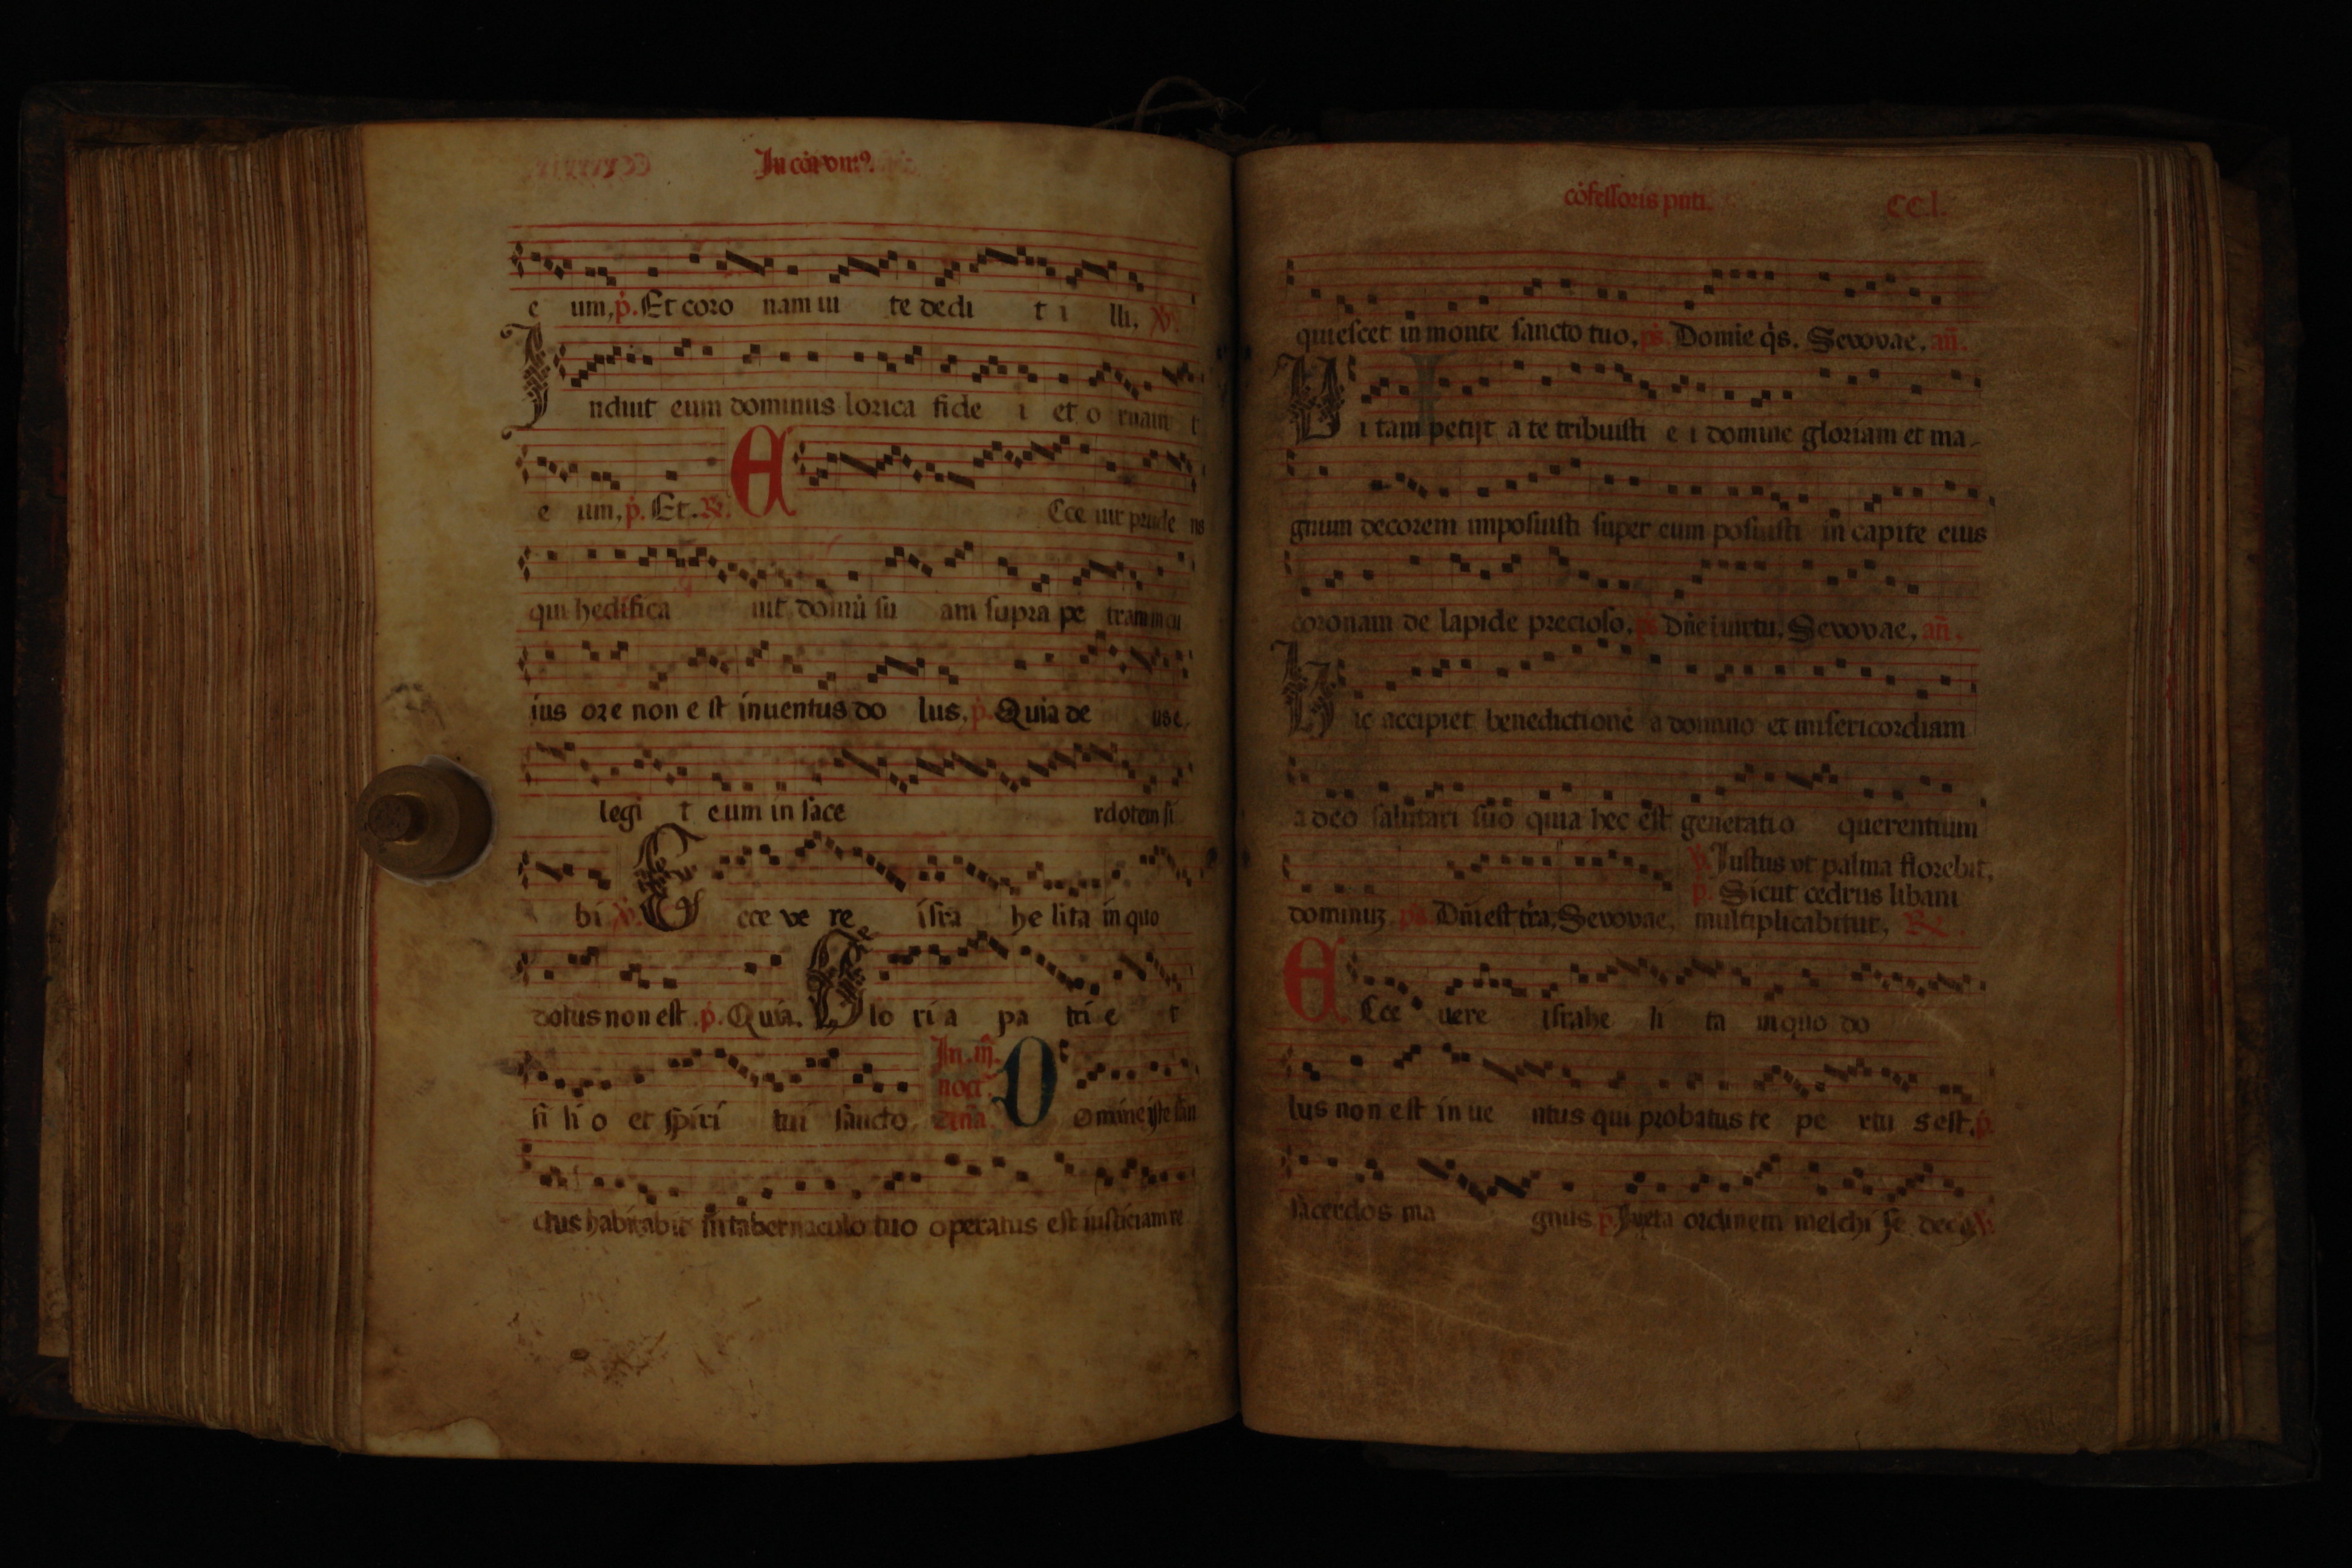 e um, p. Et coro nam ui te dedi t i lli, V.
Induit eum dominus lorica fide i et o rnaui t
e um, p. Et. R. Ecce uir prude ns
qui hedifica uit domū su am supra pe tram in cu
ius ore non e st inuentus do lus, p. Quia de us e
legi t eum in sace rdotem si
bi V. Ecce ve re isra he lita in quo
dolus non est p. Quia. Glo ri a pa tri e t
fi li o et spiri tui sancto In noct. Domine iste san
ctus habitabit in tabernaculo tuo operatus est iusticiam re
cōfessoris CC.l.
quiescet in monte sancto tuo, ps. Domīe q̇s. Sevovae, añ.
Uitam petijt a te tribuisti e i domine gloriam et ma-
gnum decorem imposuisti super eum posuisti in capite eius
coronam de lapide precioso, ps. Dñe i uirtu, Sevovae, añ.
Hic accipiet benedictionē a domino et misericordiam
a deo salutari suo quia hec est generatio querentium
V. Iustus vt palma florebit,
p. Sicut cedrus libani
dominuʒ ps. Dñi est tr̄a, Sevovae, multiplicabitur, R.
Ecce uere israhe li ta in quo do
lus non est in ue ntus qui probatus te pe rtu s est, p.
sacerdos ma gnus p. Iuxta ordinem melchi se dech V.